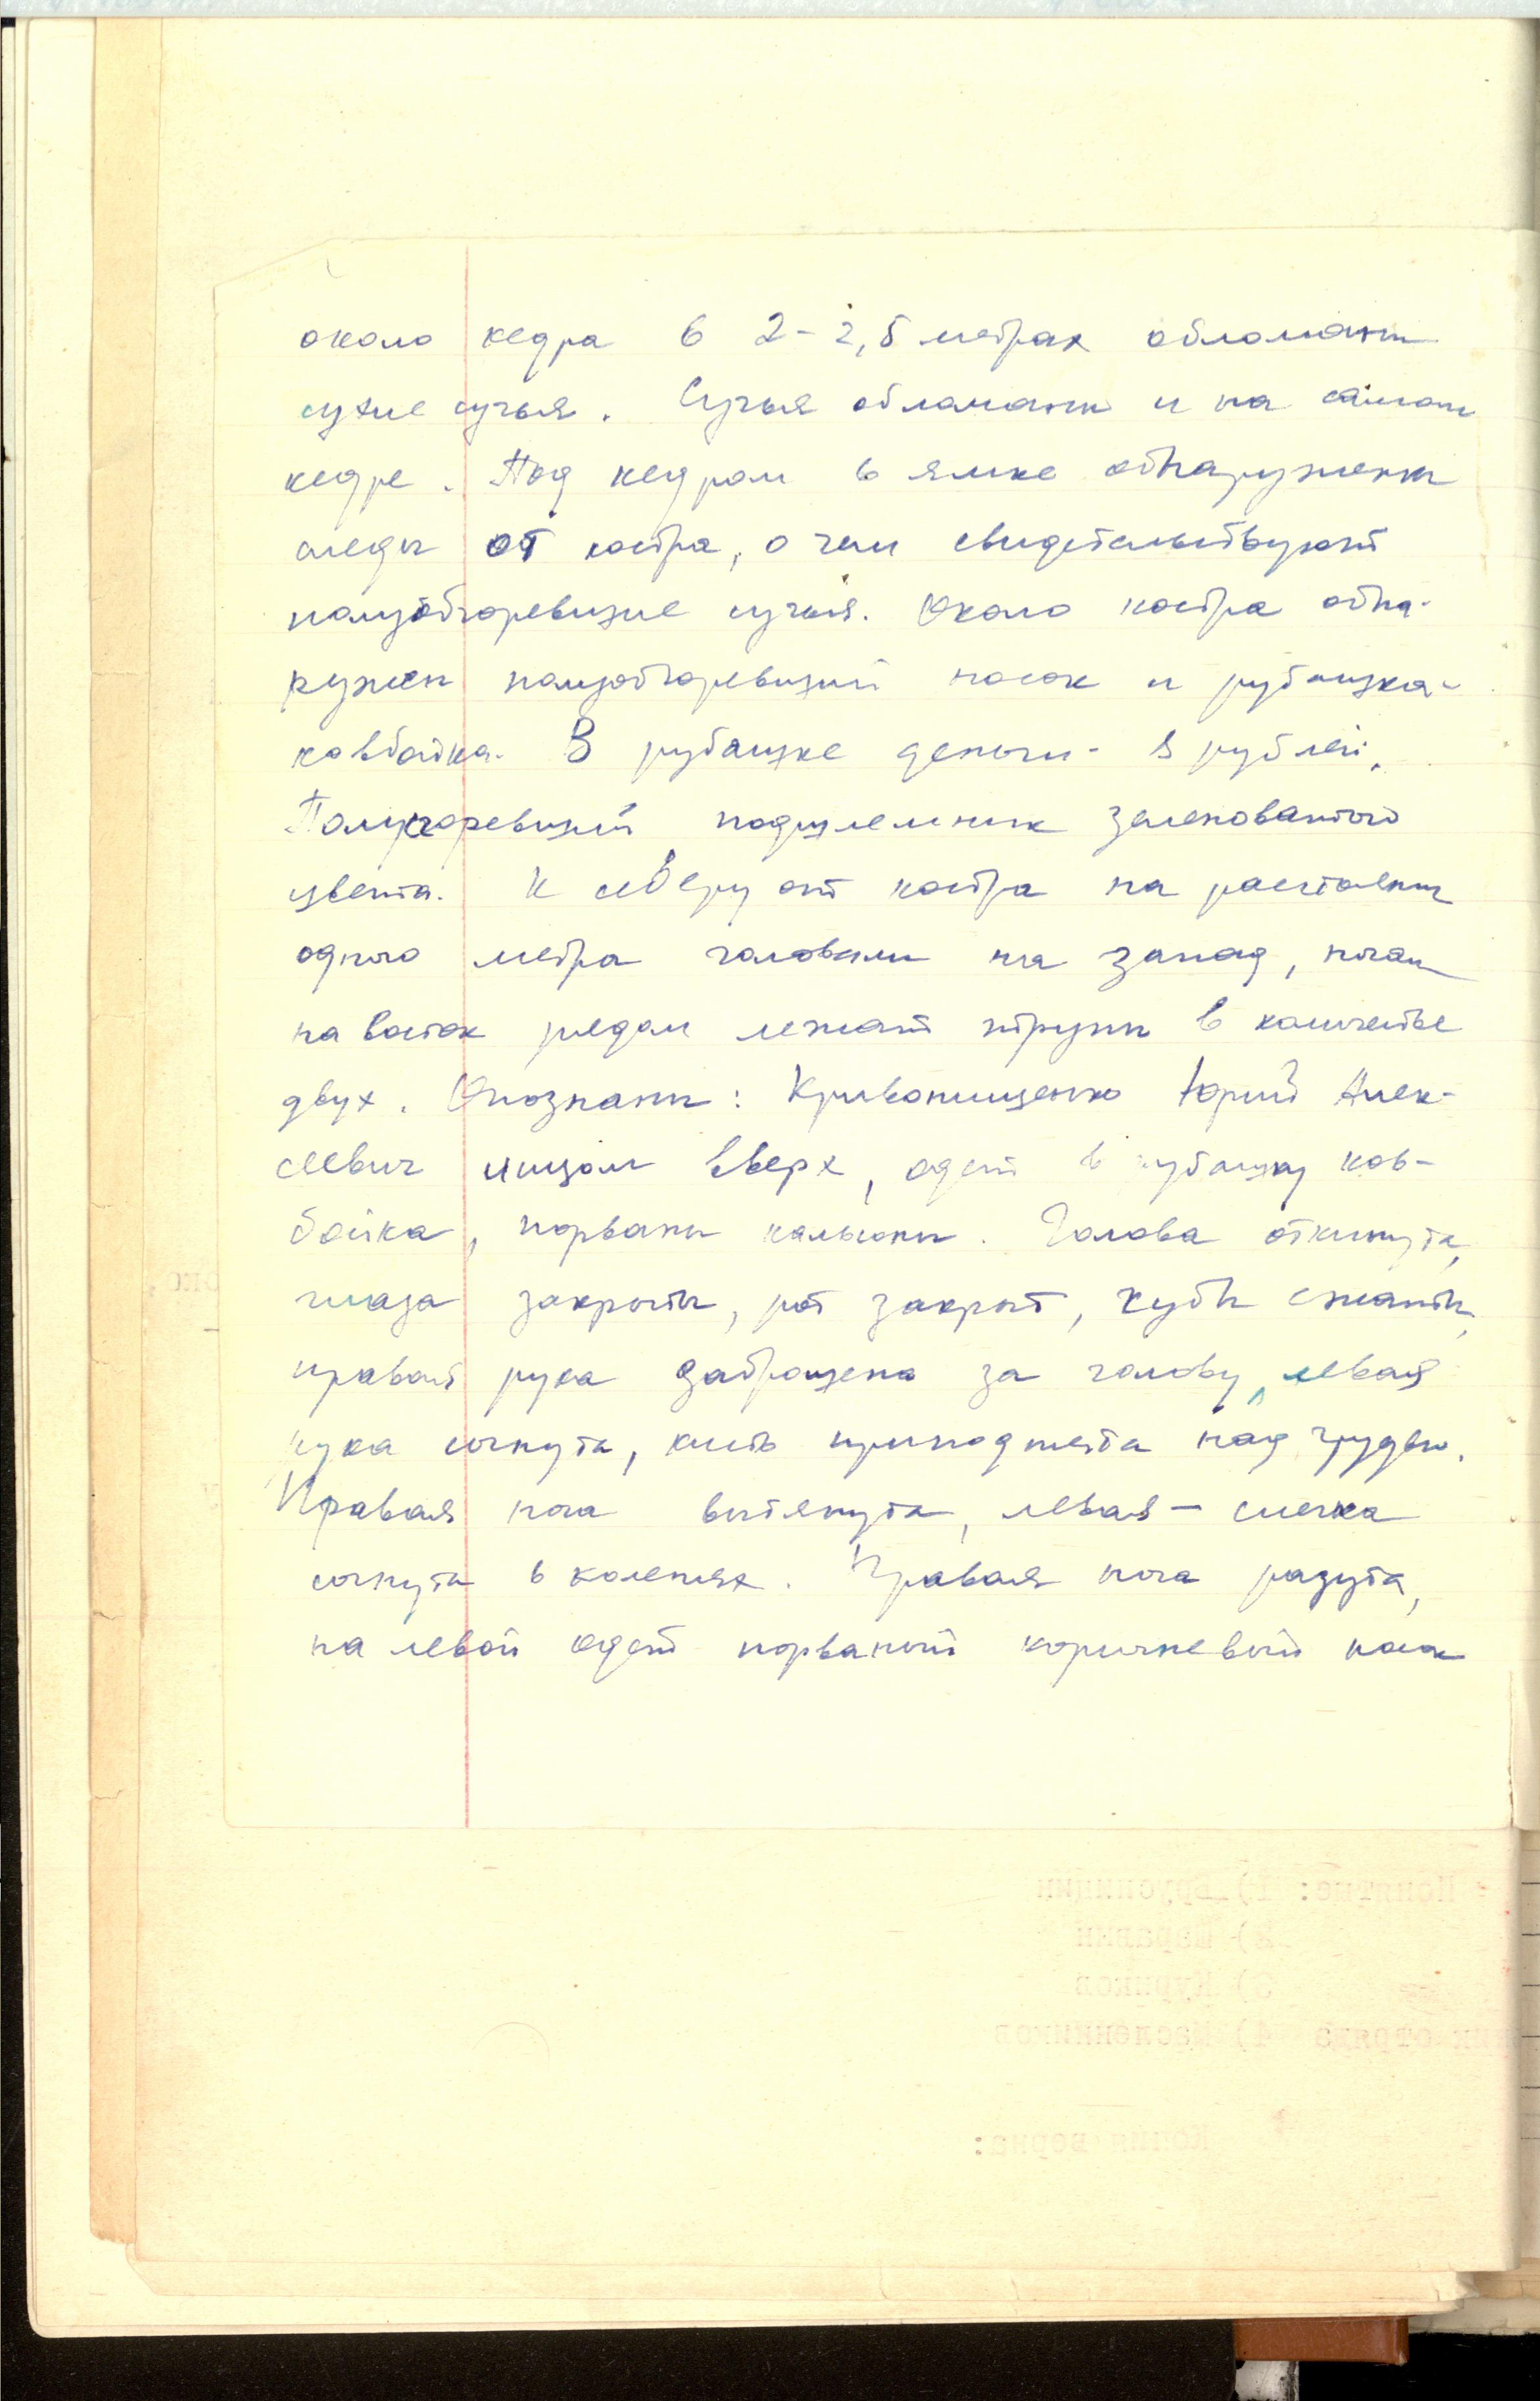 около кедра в 2-2,5 метрах обломаны
сухие сучья. Сучья обломаны и на самом
кедре. Под кедром в ямке обнаружены
следы от костра, о чем свидетельствуют
полуобгоревшие сучья. Около костра обна-
ружен полуобгоревший носок и рубашка-
ковбойка. В рубашке деньги - 8 рублей.
Полусгоревший подшлемник зеленоватого
цвета. К северу от костра на растоянии
одного метра головами на запад, ногами
на восток рядом лежат трупы в количестве
двух. Опознаны: Кривонищенко Юрий Алек-
сеевич лицом вверх, одет в рубашку ков-
бойка, порваны кальсоны. Голова откинута,
глаза закрыты, рот закрыт, губы сжаты,
правая рука заброшена за голову, левая
рука согнута, кисть приподнята над грудью.
Правая нога вытянута, левая - слегка
согнута в коленях. Правая нога разута,
на левой одет порваный коричневый носок
Понятые: 1) Брусницин
2) Шаравин
3) Куриков
отряда 4) Масленников
Копия верна: